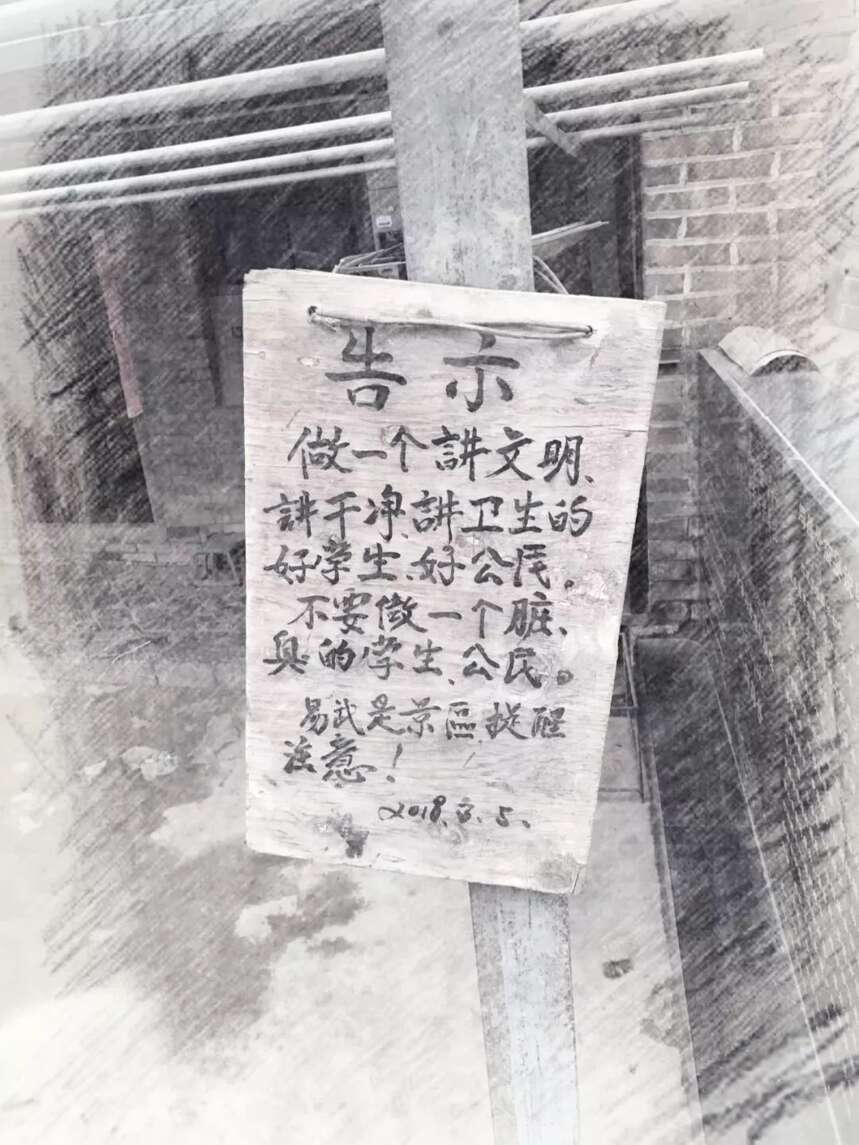 告示
做一个讲文明、
讲干净、讲卫生的
好学生、好公民。
不要做一个脏、
臭的学生、公民。
易武是景區提醒
注意！
2018.3.5.